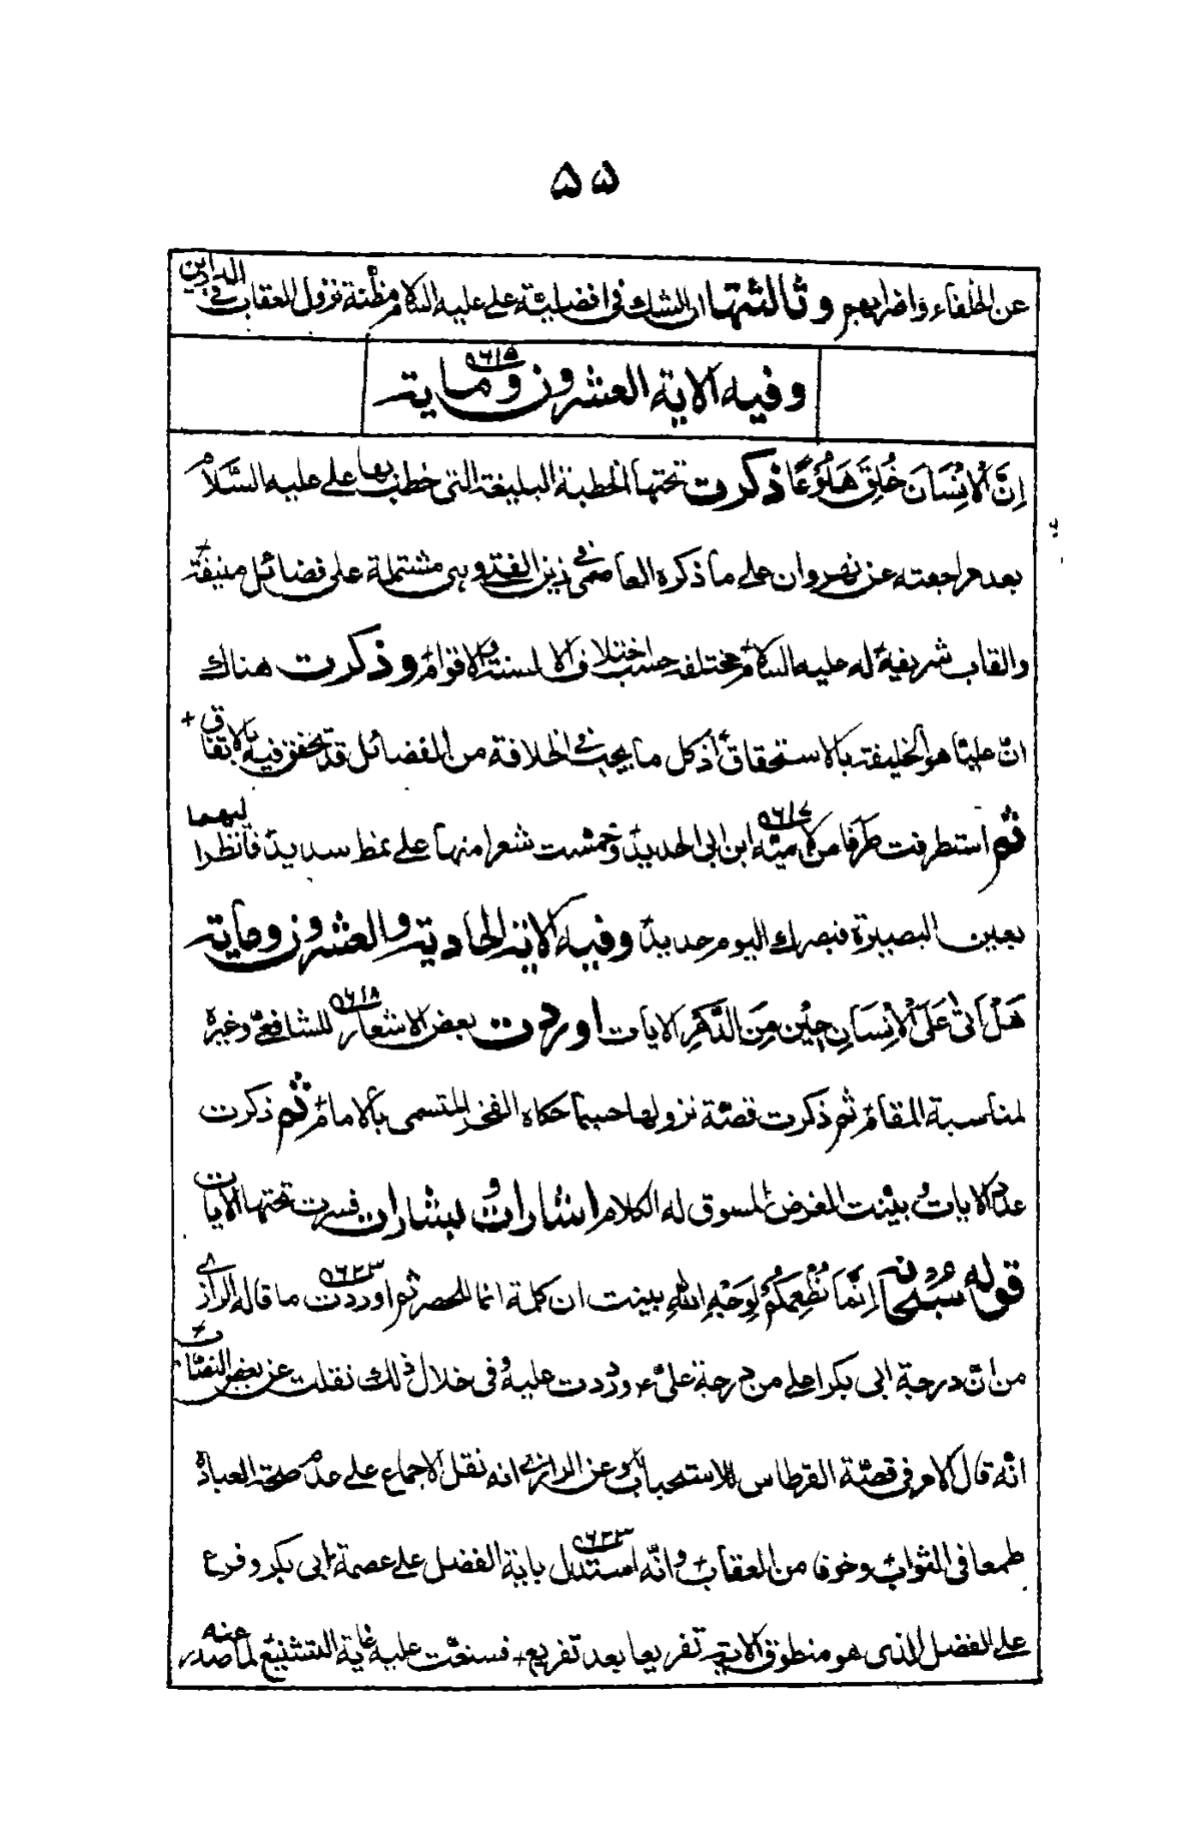 ۵۵
عن الخلفاء واضرابهم وثالثتها ان الشك فى افضليته على عليه السلام مظنة نزول العقاب فى الدارين
وفيه الاية العشرون وماية
اِنَّ الْاِنْسَانَ خُلِقَ هَلُوْعًا ذكرت تحتها الخطبة البليغة التى خطب بها على عليه السَّلامُ
بعد مراجعته عن نهروان على ما ذكره العاصمى فى زين الفتى وهى مشتملة على فضائل منيفة
والقاب شريفة له عليه السلام مختلفة حسب اختلاف الالسنة والاقوام وذكرت هناك
انّ عليّا هو الخليفة بالاستحقاق اذ كل ما يجب فى الخلافة من الفضائل قد تحقق فيه بالاتفاق
ثم استطرفت طرفا من لامية ابن ابى الحديد وخمشت شعرا منها على نمط سديد فانظر اليهما
بعين البصيرة فبصرك اليوم حديد وفيه الاية الحادية والعشرون وماية
هَلْ اَتٰى عَلَى الْاِنْسَانِ حِيْنٌ مِنَ الدَّهْرِ الايات اوردت بعض الاشعار للشافعى وغيره
لمناسبة المقام ثم ذكرت قصة نزولها حسبما حكاه الفخر المتسمى بالامام ثم ذكرت
عدد الايات وبينت الغرض المسوق له الكلام اشارات وبشارات فسرت تحتها الايات
قوله سُبْحانه اِنَّمَا نُطْعِمُكُمْ لِوَجْهِ اللّٰهِ بينت ان كلمة انما للحصر ثم اوردت ما قاله الرازى
من انّ درجة ابى بكر اعلى من درجة علىّ ع ورددت عليه وفى خلال ذلك نقلت عن بعض النصاب
انّه قال الامر فى قصّة القرطاس للاستحباب وعن الرازى انه نقل الاجماع على عدم صحة العبادة
طمعا فى الثواب وخوفا من العقاب وانّه استدل باية الفضل على عصمة ابى بكر وفرع
على الفضل الذى هو منطوق الاية تفريعا بعد تفريع فسنعت عليه غاية التشنيع لما صدر عنه